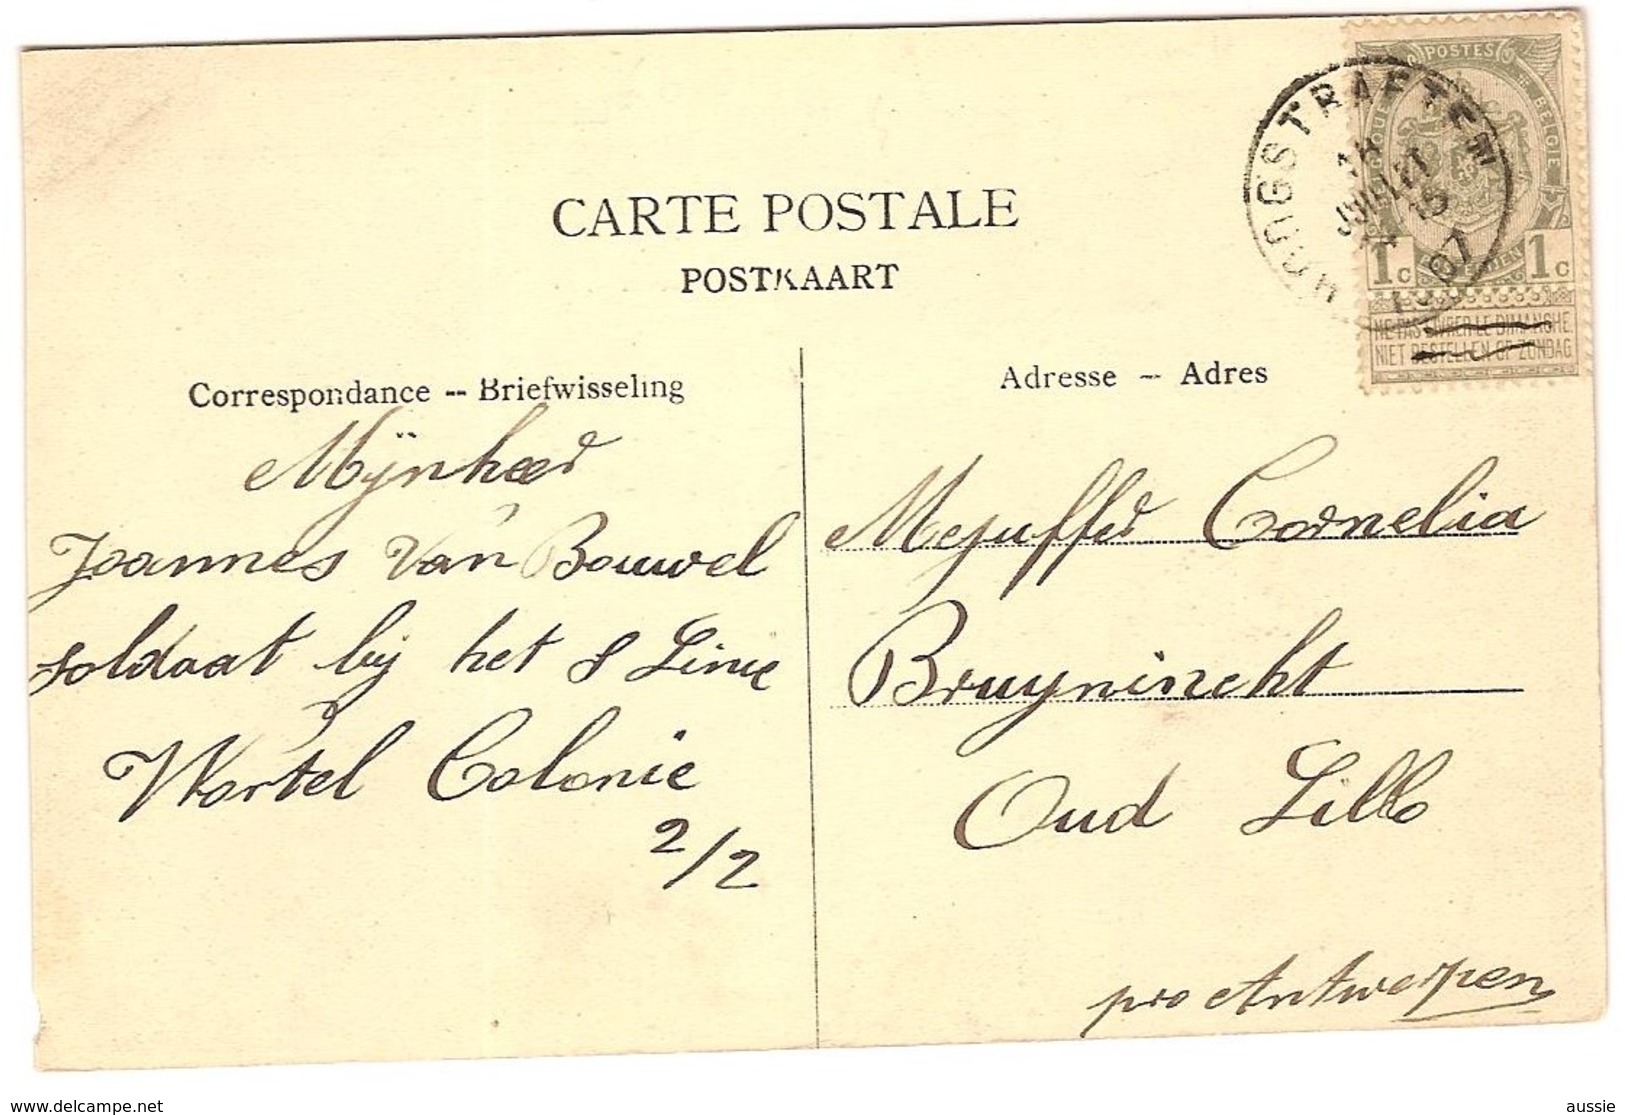 CARTE POSTALE
POSTKAART
Correspondance -- Briefwisseling
Mijnheer
Joannes Van Bouwel
soldaat bij het 8 Linie
Wortel Colonie
2/2
Adresse – Adres
Mejuffer Cornelia
Bruynincht
Oud Lillo
pro Antwerpen
POSTES
DE BELGIE
1c 1c
NE PAS LIVRER LE DIMANCHE.
NIET BESTELLEN OP ZONDAG
HOOGSTRAETEN
18
JUILLET
15
1907
www.delcampe.net
aussie